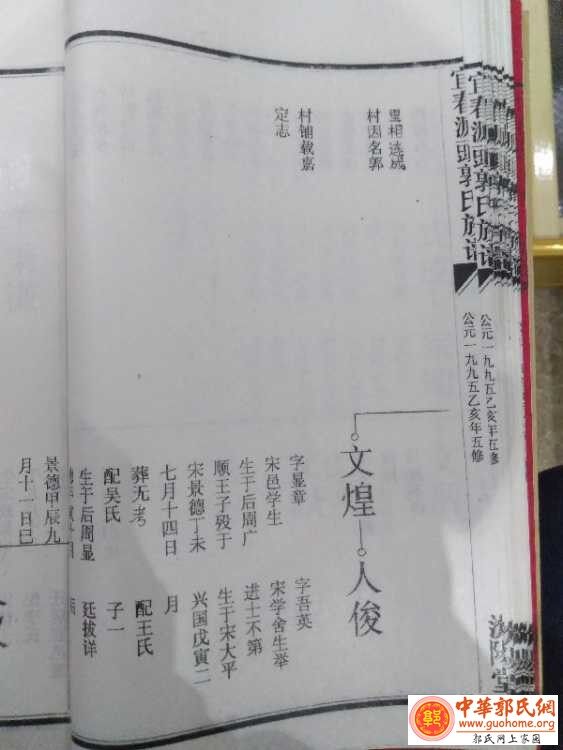 宜春源頭郭氏族谱
公元一九九五乙亥年五修
汾陽堂
里相连成
村因名郭
村铺载嘉
定志
文煌
人俊
字显章
宋邑学生
生于后周广
顺壬子殁于
宋景德丁未
七月十四日
葬无考
配吴氏
生于后周显
景德甲辰九
月十一日巳
字吾英
宋学舍生举
进士不第
生于宋太平
兴国戊寅二
月
配王氏
子一
廷拔详
后
中華郭氏網
www.guohome.org
郭氏网上家园